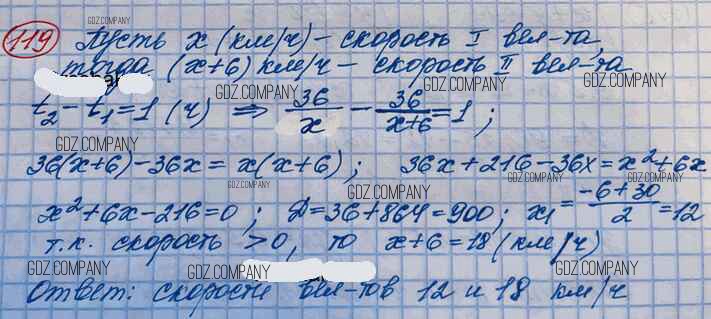 GDZ.COMPANY
119 Пусть x (км/ч) – скорость I вел-та,
тогда (x+6) км/ч – скорость II вел-та
GDZ.COMPANY GDZ.COMPANY GDZ.COMPANY
t₂ – t₁ = 1 (ч) ⇒ 36/x – 36/(x+6) = 1;
GDZ.COMPANY
36(x+6) – 36x = x(x+6); 36x + 216 – 36x = x² + 6x
GDZ.COMPANY GDZ.COMPANY GDZ.COMPANY GDZ.COMPANY
x² + 6x – 216 = 0; D = 36 + 864 = 900; x₁ = (–6 + 30)/2 = 12
т.к. скорость > 0, то x + 6 = 18 (км/ч)
GDZ.COMPANY GDZ.COMPANY GDZ.COMPANY
Ответ: скорости вел-тов 12 и 18 км/ч